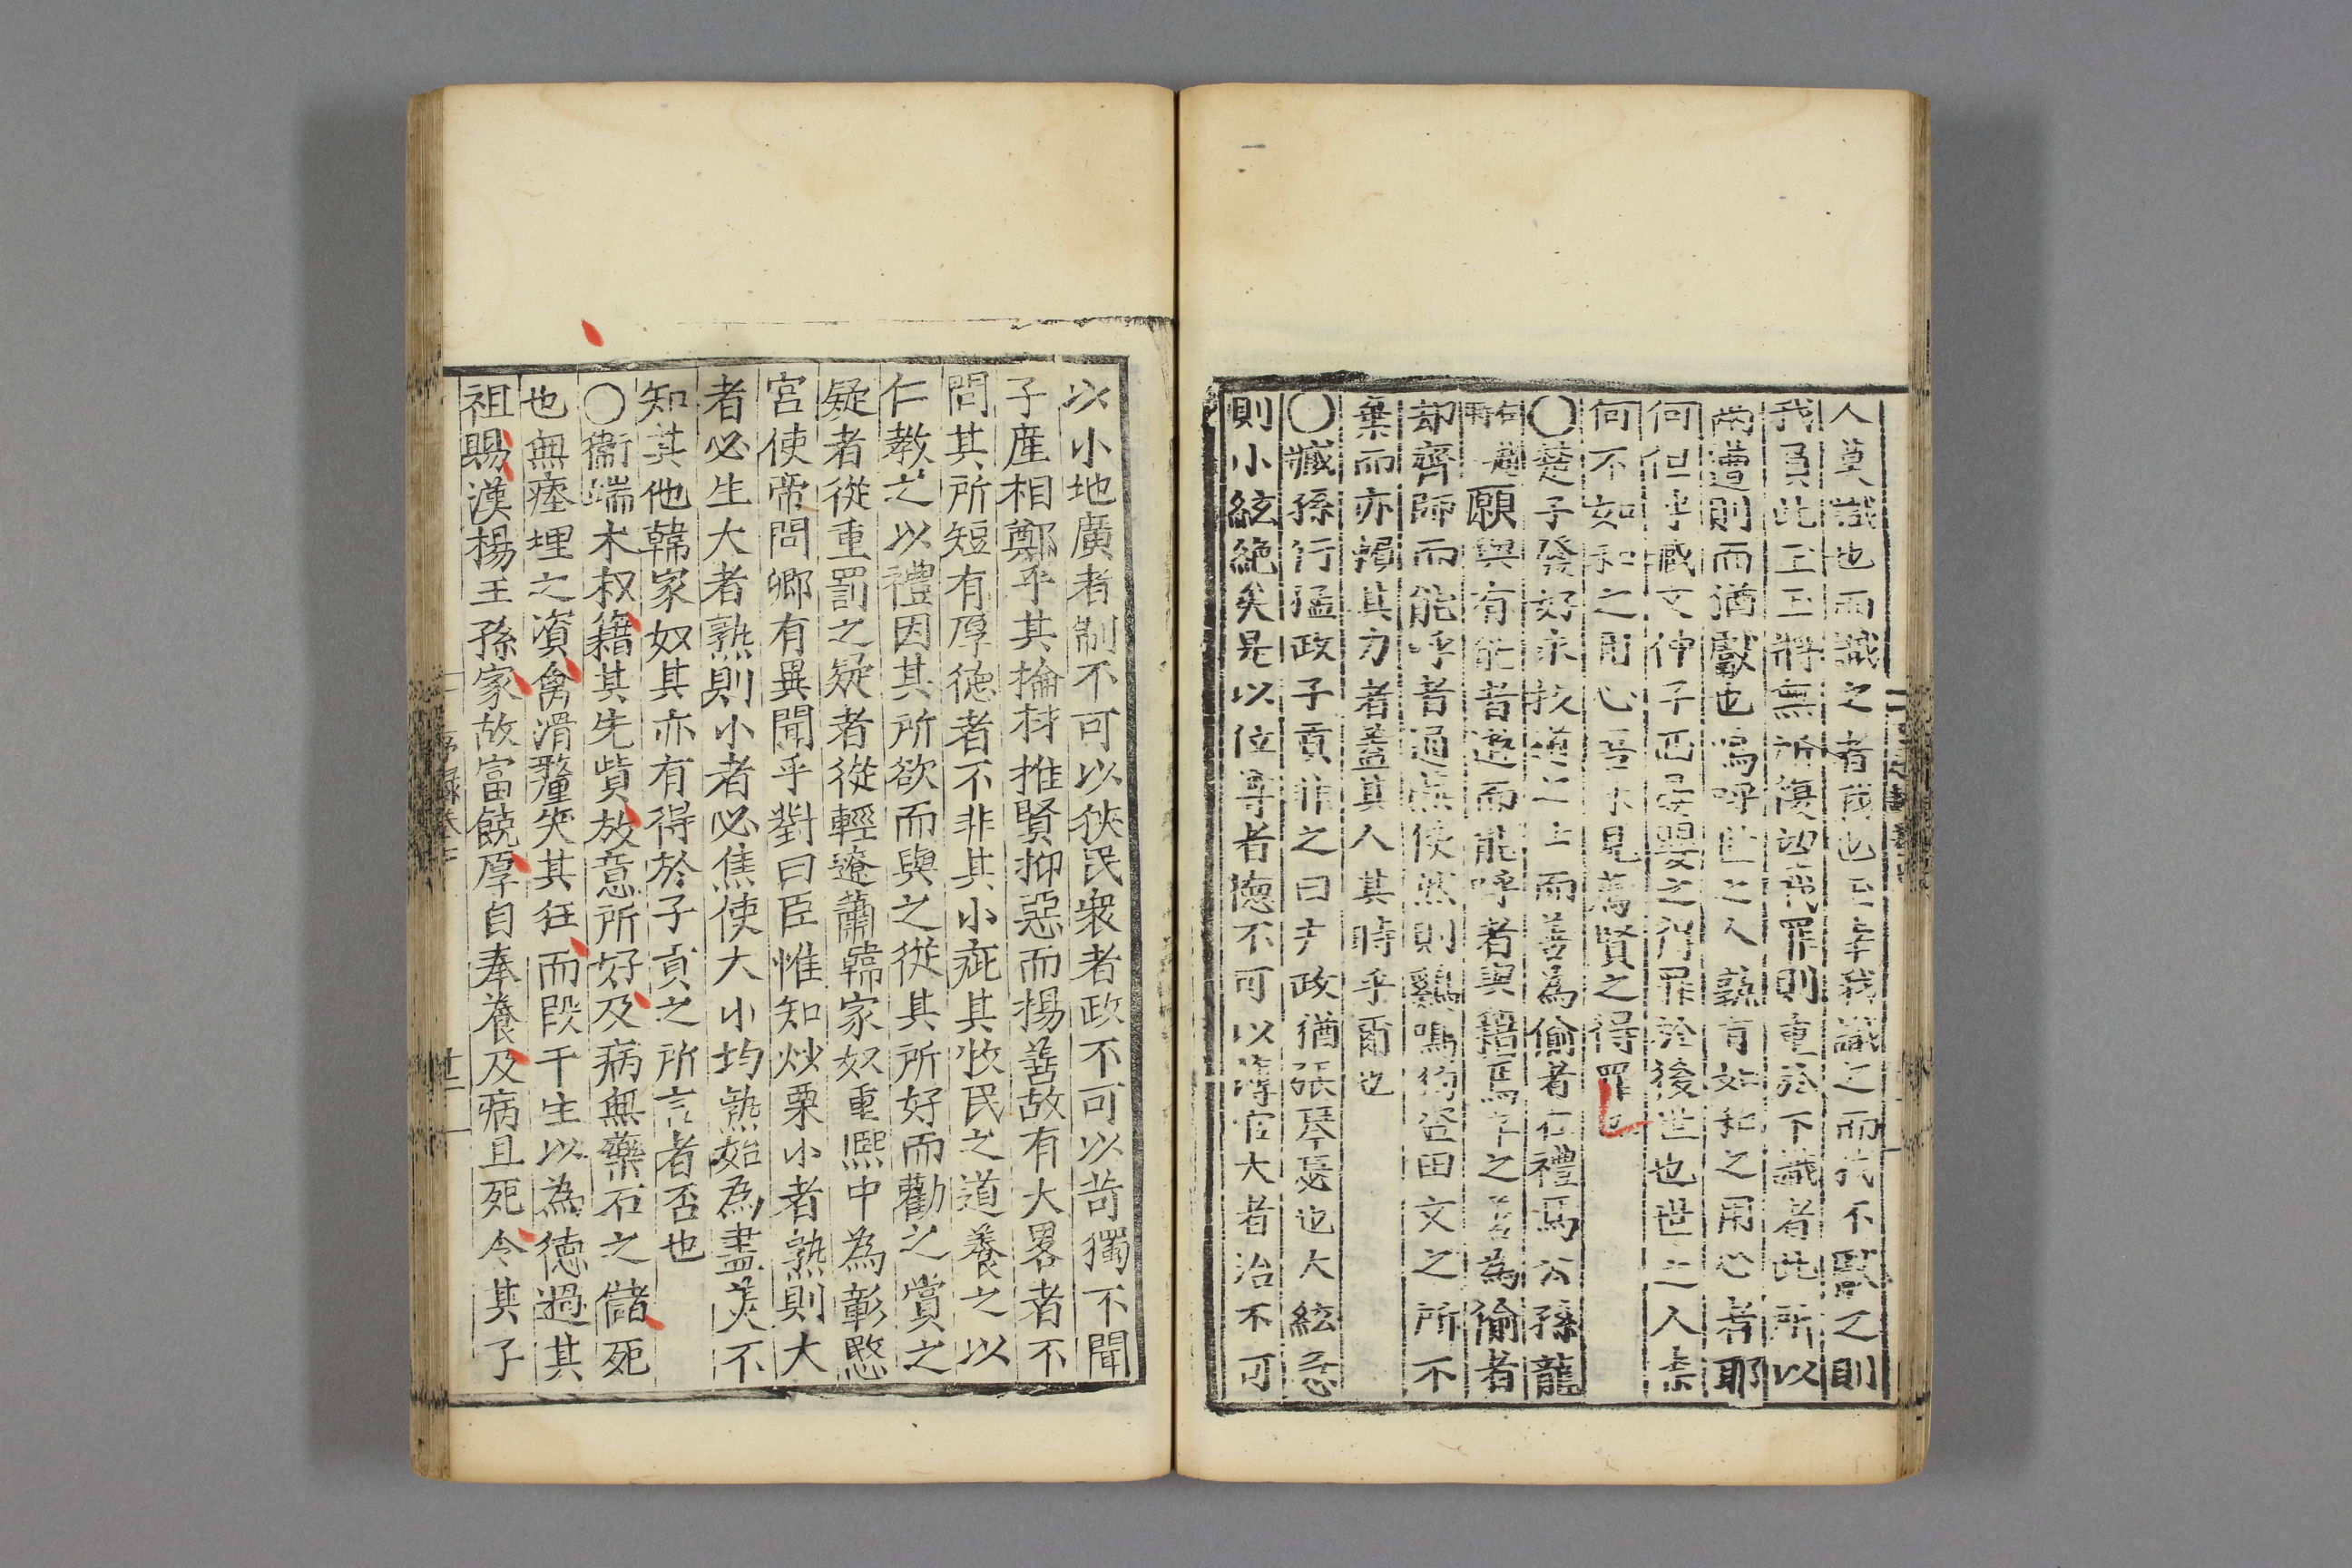 人莫識也而識之者我也玉幸我識之而我不獻之則
我負此玉玉將無所復望我罪則重於下識者此所以
兩遭則而猶獻也嗚呼世之人孰有如和之用心者耶
何但乎臧文仲子西晏嬰之得罪於後世也世之人柰
何不如和之用心吾未見為賢之得罪也
〇楚子發好求技道之士而善為偷者在禮焉公孫龍
願與有能者遊而能呼者與籍焉卒之善為偷者
却齊師而能呼者通燕使然則鷄鳴狗盗田文之所不
棄而亦賴其力者盖其人其時乎爾也
〇臧孫行猛政子貢非之曰夫政猶張琴瑟也大絃急
則小絃絶矣是以位尊者德不可以薄官大者治不可
以小地廣者制不可以狹民衆者政不可以苛獨不聞
子産相鄭乎其掄材推賢抑惡而揚善故有大畧者不
問其所短有厚徳者不非其小疵其牧民之道養之以
仁教之以禮因其所欲而與之從其所好而勸之賞之
疑者從重罰之疑者從輕遼蕭韓家奴重熙中為彰愍
宮使帝問卿有異聞乎對曰臣惟知炒栗小者熟則大
者必生大者熟則小者必焦使大小均熟始為盡美不
知其他韓家奴其亦有得於子貢之所言者否也
〇衞端木叔籍其先貲放意所好及病無藥石之儲死
也無瘞埋之資禽滑釐笑其狂而段干生以為徳過其
祖賜漢楊王孫家故富饒厚自奉養及病且死令其子